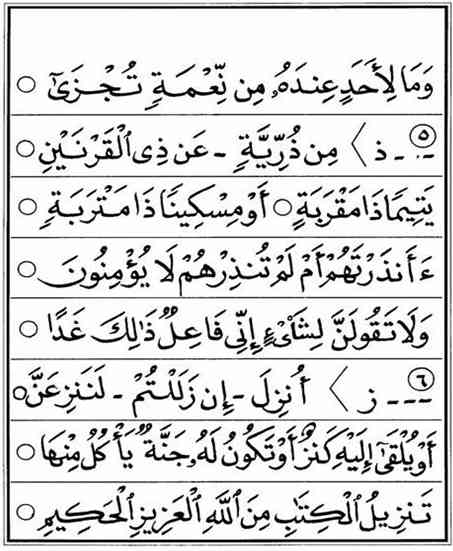 وَمَا لِأَحَدٍ عِندَهُۥ مِن نِّعْمَةٍ تُجْزَىٰٓ ○
٥ ـ ـ ذ 〈 مِن ذُرِّيَّةٍ - عَن ذِى الْقَرْنَيْنِ ○
يَتِيمًا ذَا مَقْرَبَةٍ ○ أَوْ مِسْكِينًا ذَا مَتْرَبَةٍ ○
ءَأَنذَرْتَهُمْ أَمْ لَمْ تُنذِرْهُمْ لَا يُؤْمِنُونَ ○
وَلَا تَقُولَنَّ لِشَاْىْءٍ إِنِّى فَاعِلٌ ذَٰلِكَ غَدًا ○
٦ ـ ـ ـ ز 〈 أُنزِلَ - إِن زَلَلْتُمْ - لَنَنزِعَنَّ ○
أَوْ يُلْقَىٰٓ إِلَيْهِ كَنزٌ أَوْ تَكُونُ لَهُۥ جَنَّةٌ يَأْكُلُ مِنْهَا ○
تَنزِيلُ الْكِتَٰبِ مِنَ اللَّهِ الْعَزِيزِ الْحَكِيمِ ○